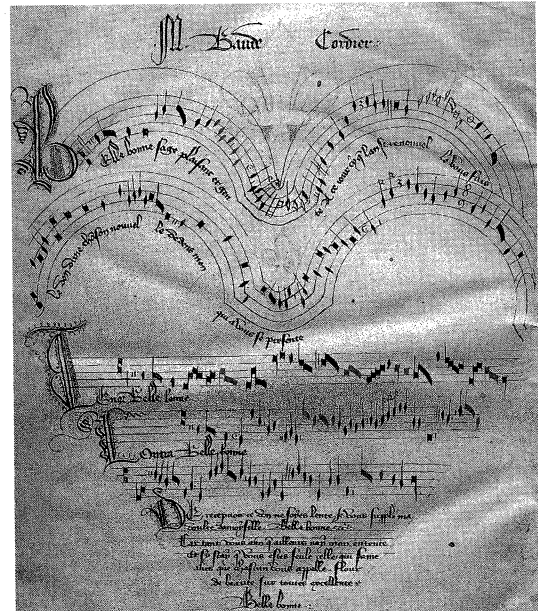 M. Baude Cordier:
BElle bonne sage plaisant et gen
te A ce jour cy q lan se renouvel
Vous fais
le don dune chanson nouvel
le Dedens mon
qui a vous se presente
Tenor Belle bonne
Contra Belle bonne
De recepvoir ce don ne soyes lente Je vous suppli ma
doulce damoyselle Belle bonne
Car tant vous aim qaillours nay mon entente
Et sy scay q vous estes seule celle qui fame
Aves que chascun vous appelle flour
de beaute sur toutes excellente
Belle bonne